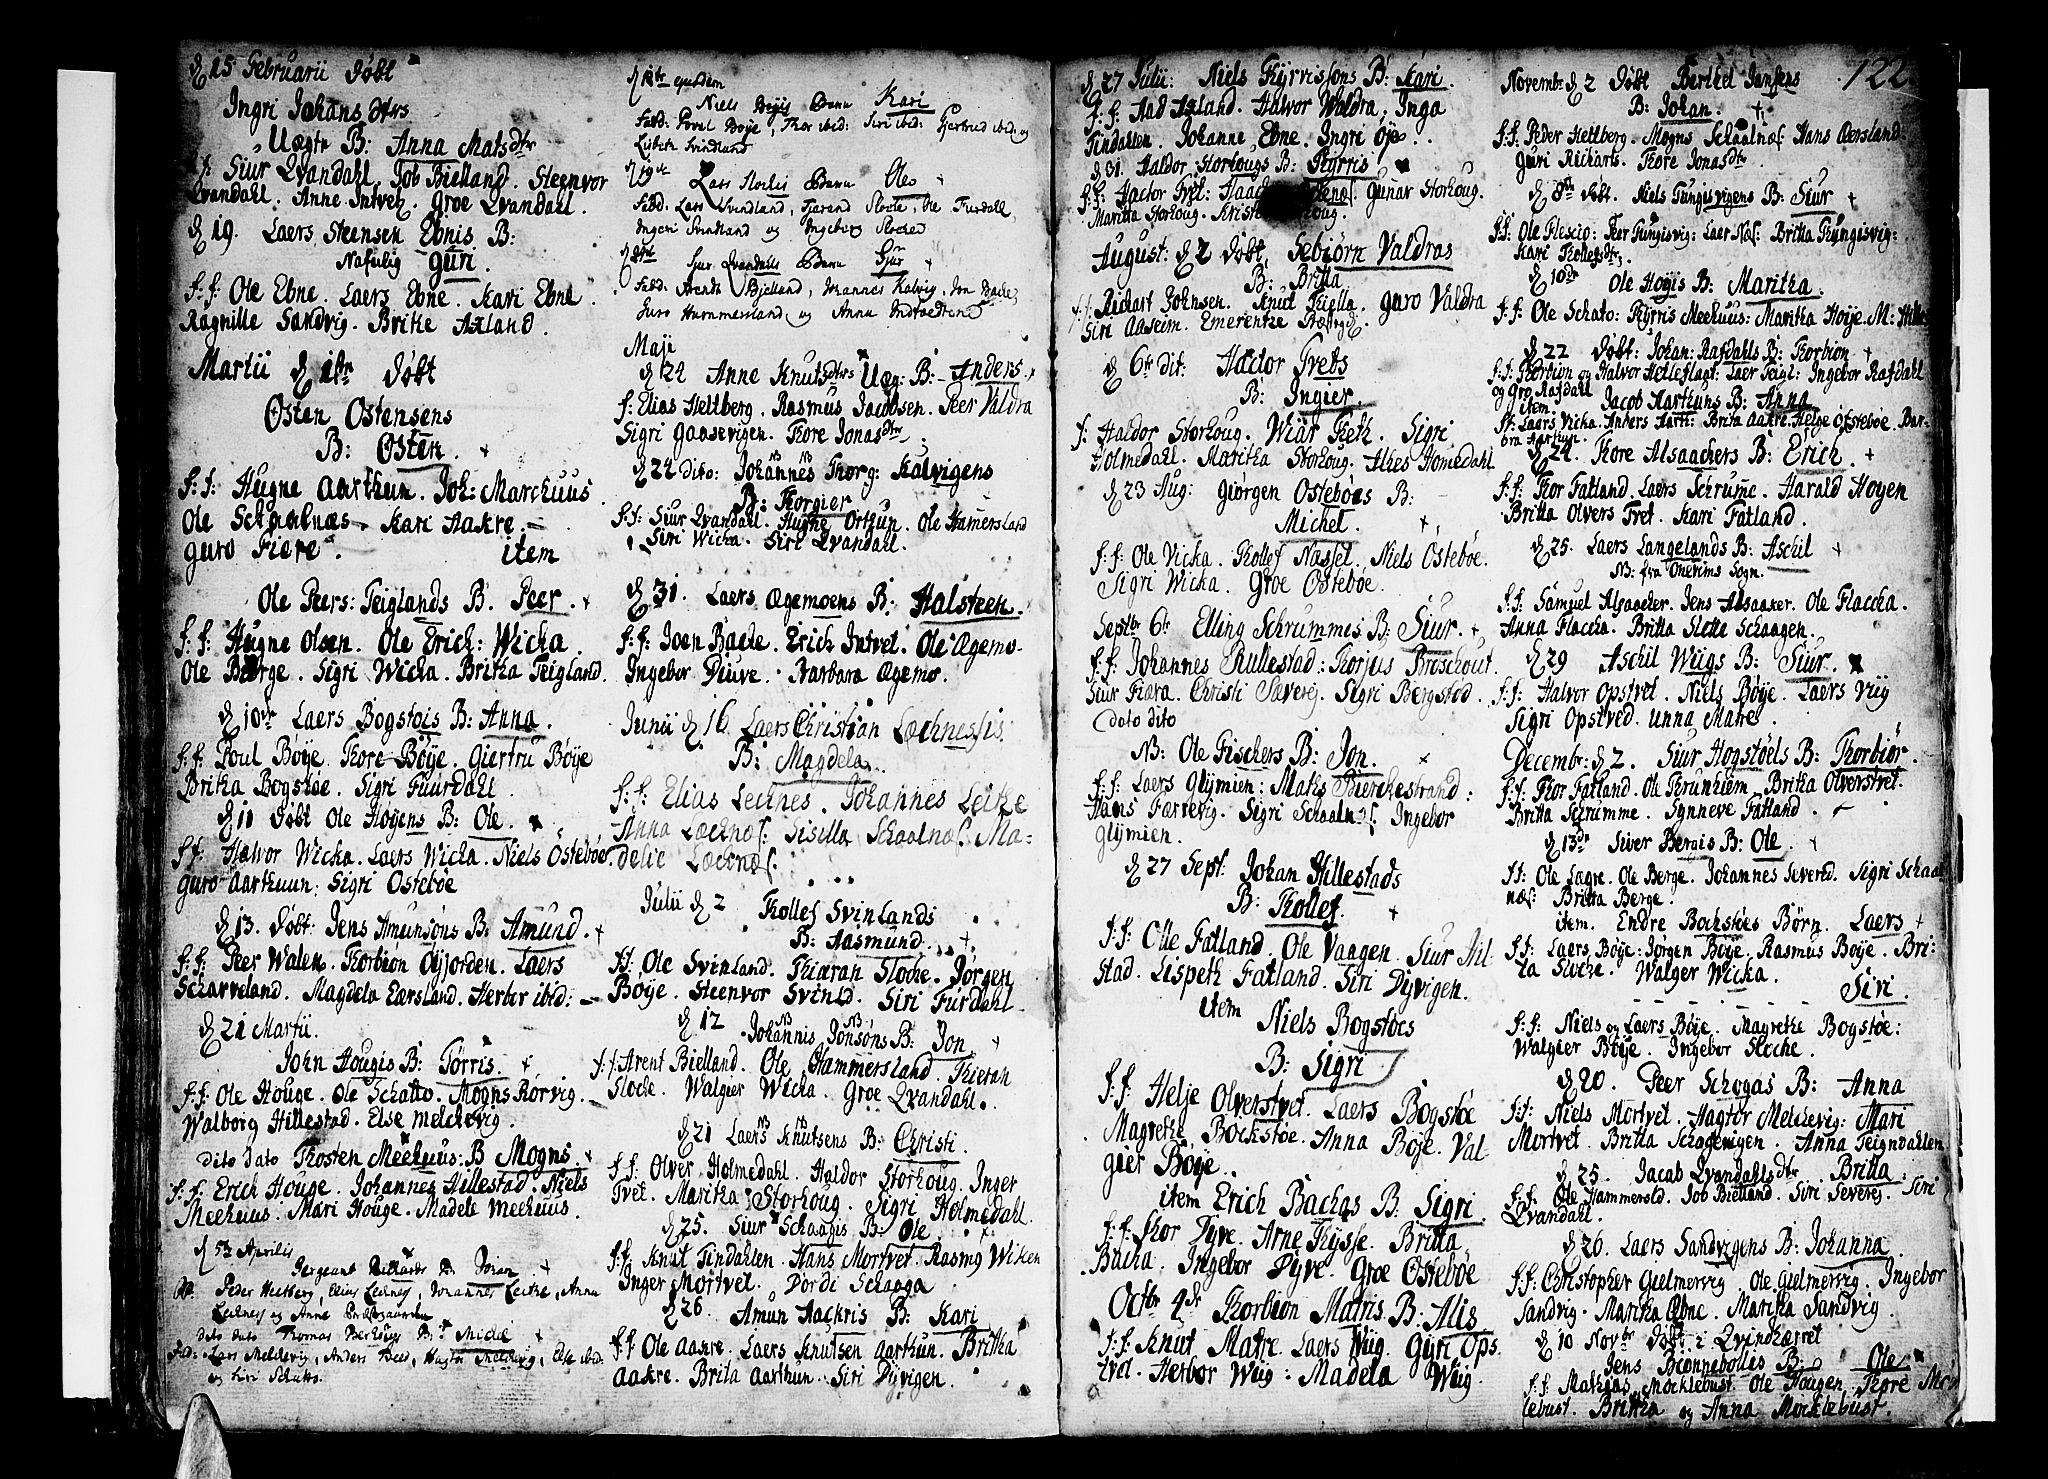 d 15 Februarii Døbt
Ingri Johans dtrs
Uægte B: Anna Matsdtr
f: Siur Qvandahl. Job Bielland. Steenvor
Qvandahl. Anne Intvet. Groe Qvandahl.
d 19. Laers Steensen Ebnis B:
Nafnlig Guri.
f: f: Ole Ebne. Laers Ebne. Kari Ebne
Ragnille Sandvig. Britke Axland.
Martii d 1ste Døbt
Østen Østensens
B: Østen.
f: f: Hugne Aarthun. Joh: Marchuus
Ole Schaalnæs. Kari Aakre.
Guro Fiære. item
Ole Peers: Teiglands B. Peer.
f: f: Hugne Olsen. Ole Erich: Wicka
Ole Berge. Sigri Wicka. Britha Teigland.
d 10de Laers Bogstøis B: Anna.
f: f: Poul Bøye. Thore Bøye. Giertru Bøye
Britha Bogstøe. Sigri Fuurdahl.
d 11 Døbt Ole Høyens B: Ole.
f: f: Halvor Wicka. Laers Wicka. Niels Østebøe.
Guro Aarthuun: Sigri Ostebøe
d 13. Døbt: Jens Amunsøns B: Amund.
f: f: Peer Walen. Thorbion Øyjorden. Laers
Scharveland. Magdela Eersland. Herbor ibid:
d 21 Martii.
John Hougis B: Tørris.
f: f: Ole Houge. Ole Schatto. Mogns Rørvig.
Walborg Hillestad. Else Melchevig.
dito dato Thosten Meehuus: B Mogns
f: f: Erich Houge. Johannes Hillestad. Niels
Meehuus. Mari Houge. Madele Meehuus.
d 5te Aprilis
Sergeant Richards B: Johan
Peder Heltberg, Elias Lechnes, Johannes Leithe, Anna
Lechnes og Anne
dito dato Thomas Berhoug B: Michel
Fad: Lars Melchevig, Anders Bee, Hagtor Melchevig, Else ibid:
og Siri Schatto.
d 12te ejusdem
Niels Bøyis Barn Kari
Fadd: Povel Bøye, Thor ibid: Siri ibid: Giertrud ibid: og
Lisbeth Svindland
d 19de
Lars Slochis Barn Ole
Fadd. Lars Svindland, Tharand Sloche, Ole Furdall,
Ingeri Svindland og Ingeborg Sloche
Sjur Qvandalls Barn Sjur
Fadd: Arendt Bjelland, Johannes Kalvig, Jon Backe,
Guro Hummersland, og Anna Indtvedtene
Maji
d 22 Anne Knutsdtrs Uæg: B: Anders
f: Elias Heltberg. Rasmus Jacobsen. Peer Valdra
Sigri Gaasevigen. Thore Jonasdtr
d 22 dito: Johannes Thorg: Kalvigens
B: Thorgier
f: f: Siur Qvandahl. Hugne Orthun. Ole Hamersland
Siri Wicka. Siri Qvandahl.
d 31. Laers Ægemoens B: Halsteen.
f: f: Joen Backe. Erich Intvet. Ole Ægemo.
Ingebor Diuve. Barbara Ægemo.
Junii d 16. Laers Christian Læchnessis
B: Magdela.
f: f: Elias Lechnes. Johannes Leithe
Anna Læchnæs. Sisella Schaalnæs. Ma-
delie Læchnæs.
Julii d 2 Thollef Svinlands
B: Aasmund.
f: f: Ole Svinland. Thiæran Slocke. Jørgen
Bøije. Steenvor Svinld. Siri Furdahl
d 12 Johannis Jonsøns B: Jon
f: f: Arent Bielland. Ole Hammersland. Thieran
Slocke. Walgier Wicka. Groe Qvandahl.
d 21 Laers Knutsens B: Christi
f: f: Olver Holmedahl. Haldor Storhoug. Inger
Tvet. Maritha Storhoug. Sigri Holmedahl.
d 25. Siur Schaagis B: Ole
f: f: Knut Tindahlen. Hans Mortvet. Rasmus Wiken
Inger Mortvet. Dordi Schaaga
d 26. Amun Aachris B: Kari
f: f: Ole Aakre. Laers Knutsen Aarthun. Britha
Aakre. Brita Aarthun. Siri Dyvigen.
d 27 Julii: Niels Thyrrissøns B: Kari.
f: f: Aad Axland. Halvor Valdra. Inga
Tindahlen. Johanne Ebne. Ingri
d 31. Haldor Storhougs B: Thyrris
f: f: Hactor Tvet: Gunar Storhoug.
Maritta Storhoug.
August: d 2 Døbt, Sebiørn Valdras
B: Britta
f: f: Richart Johnsen. Knut Thiella. Guro Valdra
Siri Aaseim. Emerentze
d 6te dit: Hactor Tvets
B: Ingier.
f: Haldor Storhoug. Wiar Theth. Sigri
Holmedahl. Maritha Storhoug. Alkes Homedahl
d 23 Aug: Giørgen Ostebøes B:
Michel.
f: f: Ole Vicka. Thollef Næssel. Niels Østebøe.
Sigri Wicka. Groe Ostebøe.
Septbr 6te Elling Schrummes B: Siur.
f: f: Johannes Thullestad: Thorjus Broschout
Siur Fiæra. Christi Severeij. Sigri Bergstad.
dato dito
NB: Ole Fischers B: Jon.
f: f: Laers Glymien: Mats Bierchestrand:
Hans Færrevig. Sigri Schaalnæs. Ingebor
Glymien.
d 27 Sept. Johan Hillestads
B: Thollef.
f: f: Olle Fatland. Ole Vaagen. Siur Hil-
stad. Lispeth Fatland. Siri Dyvigen.
item Niels Bogstøes
B: Sigri
f: f: Helje Olverstvet. Laers Bogstøe
Magrethe Bockstøe. Anna Bøje. Val-
gier Bøye.
item Erich Bachas B: Sigri.
f: f: Thor Dyve. Arne Thysse. Britta
Bacha. Ingebor Dyve. Groe Østebøe
Octbr 4de Thorbion Matris B: Alis
f: f: Knut Matre. Laers Wiig. Gyri Ops-
tvet. Herbor Wiig: Madela Wiig.
122
Novembr d 2 Døbt Berthel Jansens
B: Johan.
f: f: Peder Heltberg. Mogns Schaalnæs Hans Aersland.
Guri Richarts. Thore Jonasdtr
d 8de Døbt. Niels Tungisvigens B: Siur
f: f: Ole Flescio: Peer Tungisvig: Laer Næs: Britta Thungisvig:
Kari Thollefsdtr.
d 10de Ole Høyis B: Maritha.
f: f: Ole Schato: Thyrris Meehuus: Maritha Høije. M:
d 22 Døbt: Johan: Rafdahls B: Thorbion
f: f: Thorbion og Halvor Hetleflaat: Laer Teigl: Ingebor Rafdahl
og Gro Rafdahl
item. Jacob Aarthuns B: Anna
f: f: Laers Vicka. Anders Aarth: Brita Aakre. Helge Østebøe. Bar-
bra Aarthun.
d 24. Thore Alsaachers B: Erich.
f: f: Thor Fatland. Laers Schrume. Harald Høyen
Britta Olvers Tvet. Kari Fatland.
d 25. Laers Langelands B: Aschil
NB: fra Onerims Sogn.
f: f: Samuel Alsaacker. Jens Alsaaker. Ole Flaccha.
Anna Flaccha. Britta Slotte Schaagen.
d 29 Aschil Wiigs B: Siur.
f: f: Halvor Opstvet. Niels Bøije. Laers Viig
Sigri Opstved. Unna Matre
Decembr: d 2. Siur Hogstøels B: Thorbiør.
f: f: Thor Fatland. Ole Thrunhiem. Britha Olverstvet.
Britta Schrumme. Synneve Fatland.
d 13de Siver Bergis B: Ole.
f: f: Ole Lagre. Ole Berge. Johannes Severed. Sigri Schaal-
næs: Britta Berge.
item. Endre Bockstøes Børn. Laers
f: f: Laers Bøye. Jørgen Bøije. Rasmus Bøije. Bri-
ta Slocke. Walger Wicka.
Siri.
f: f: Niels og Laers Bøije. Magrethe Bogstøe:
Walgier Bøije. Ingebor Slocke.
d 20. Peer Schogas B: Anna
f: f: Niels Mortvet. Hagtor Melchevig: Mari
Mortvet. Britta Schagevigen. Anna Teigndahlen
d 25. Jacob Qvandahls dtr Britta.
f: f: Ole Hammersld. Job Bielland. Siri Severej. Siri
Qvandahl.
d 26. Laers Sandvigens B: Johanna
f: f: Christopher Gielmervig. Ole Gielmervig. Ingebor
Sandvig. Maritha Ebne. Maritha Sandvig.
d 10 Novbr Døbt i Qvindhæret
Jens Bionnebolles B: Ole
f: f: Mathias Mocklebust. Ole Hougen. Thore Mock-
lebust. Britha og Anna Mocklebust.